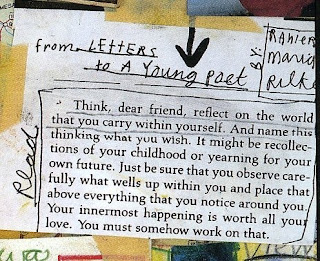 from LETTERS
to A Young Poet
By:
RAniER
Maria
Rilke
Read
Think, dear friend, reflect on the world
that you carry within yourself. And name this
thinking what you wish. It might be recollec-
tions of your childhood or yearning for your
own future. Just be sure that you observe care-
fully what wells up within you and place that
above everything that you notice around you.
Your innermost happening is worth all your
love. You must somehow work on that.